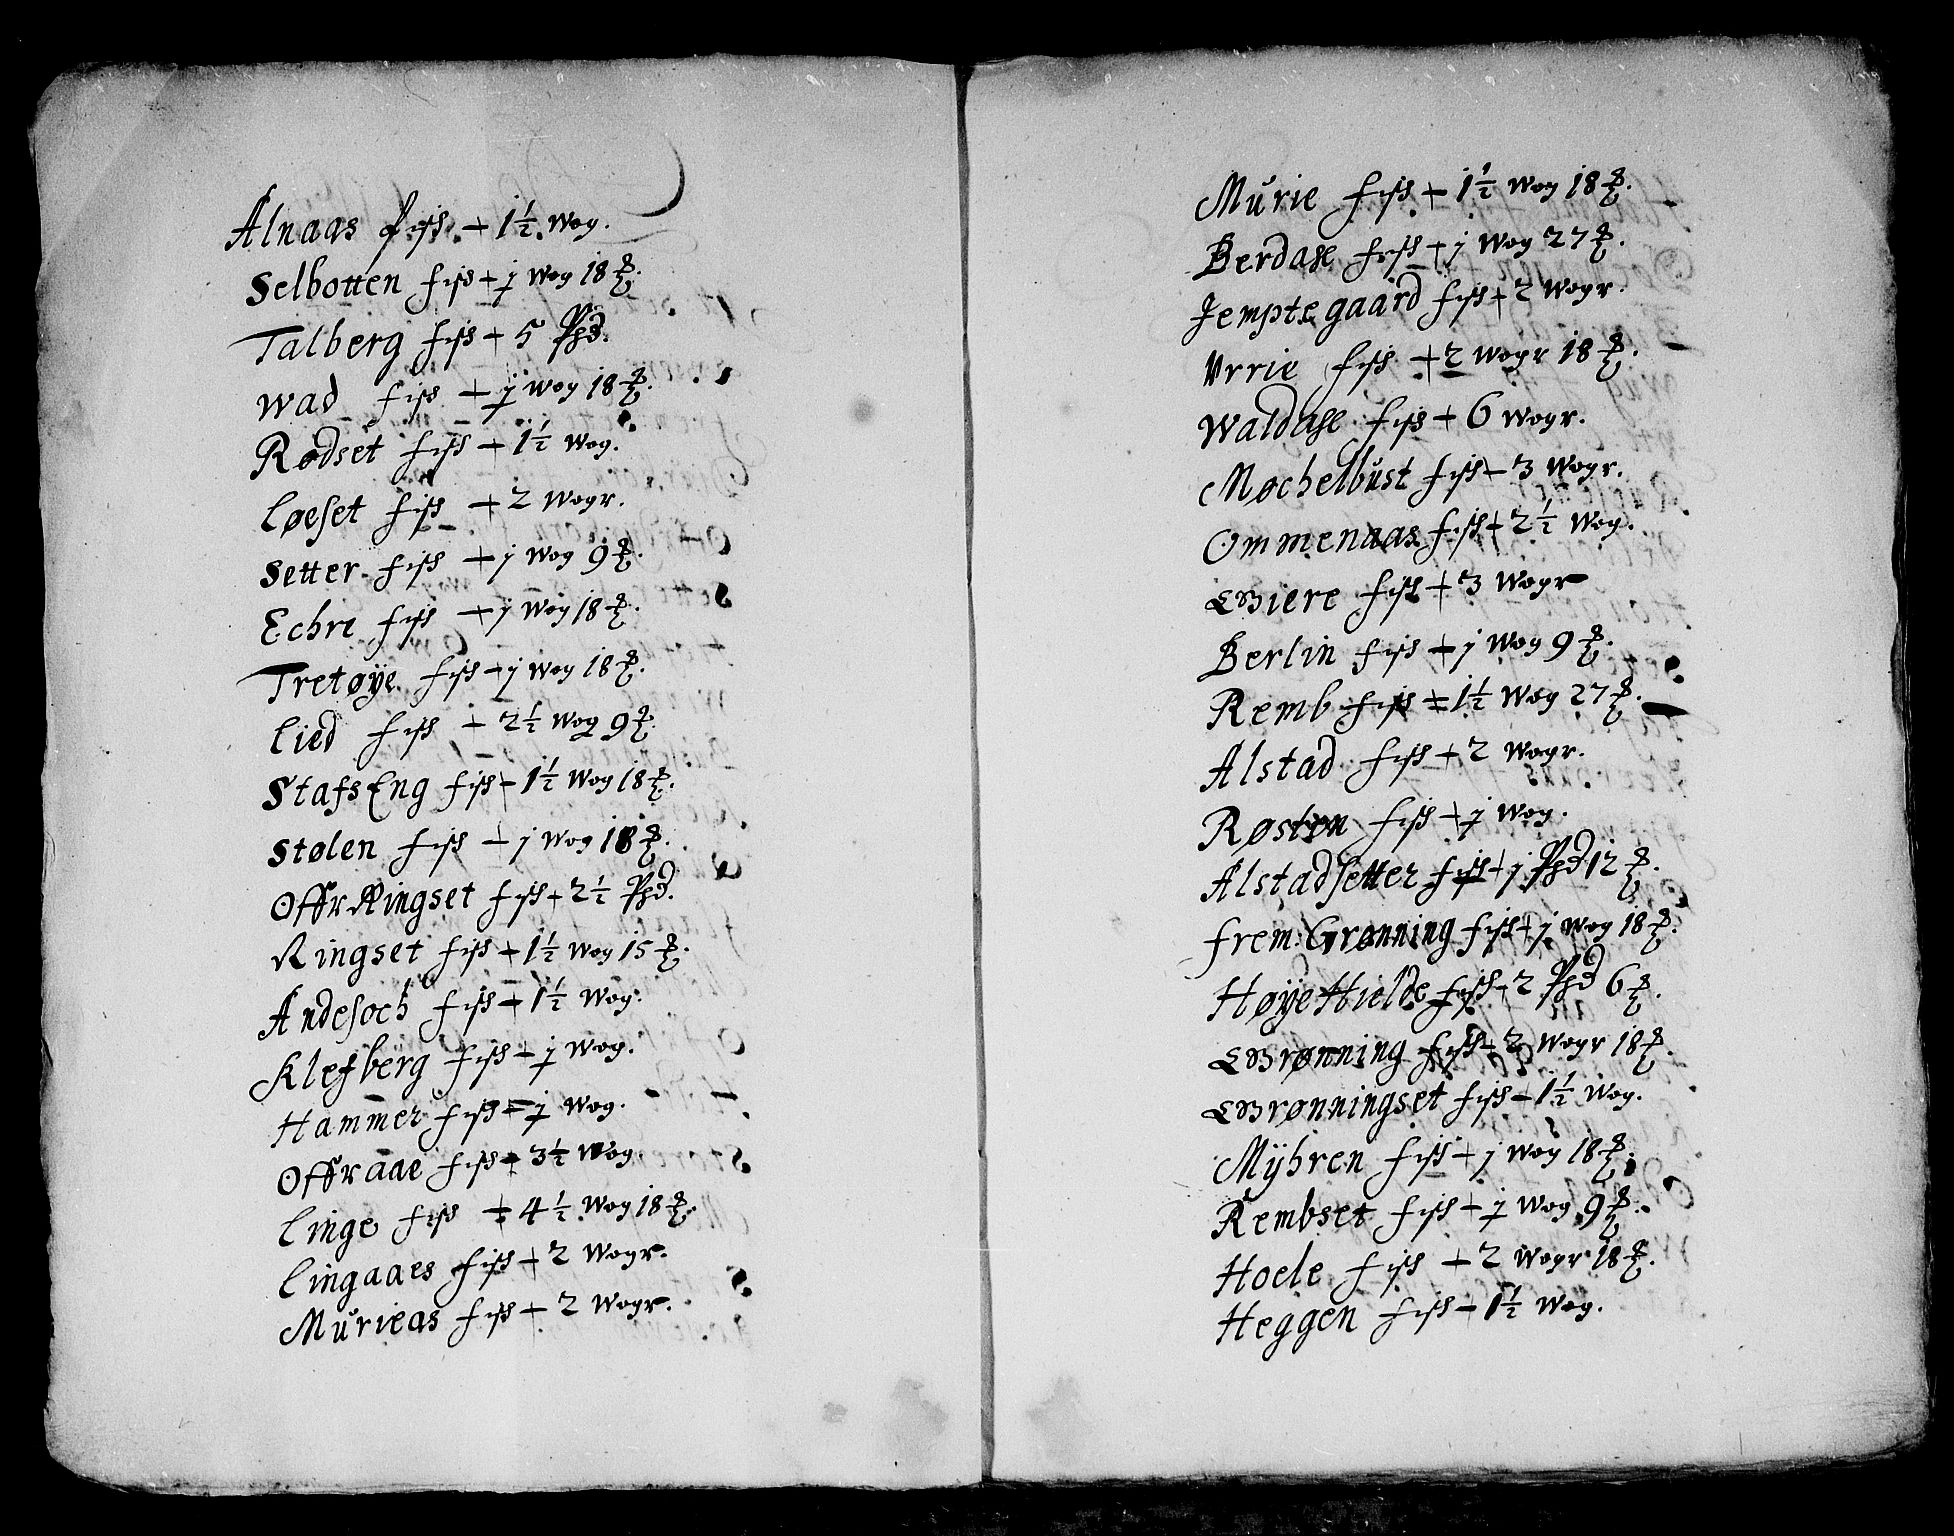 Alnaas fisk + 1½ Wog.
Selbotten fisk + j Wog 18 ℔.
Talberg fisk + 5 Phd.
Wad fisk + j Wog 18 ℔.
Rødset fisk + 1½ Wog.
Løeset fisk + 2 Wogr.
Setter fisk + j Wog 9 ℔.
Echre fisk + j Wog 18 ℔.
Tretøye fisk + j Wog 18 ℔.
Lied fisk + 2½ Wog 9 ℔.
Stafs Eng fisk + 1½ Wog 18 ℔.
Stølen fisk + j Wog 18 ℔.
Offr Ringset fisk + 2½ Phd.
Ringset fisk + 1½ Wog 15 ℔.
Andesoch fisk + 1½ Wog.
Klefberg fisk + j Wog.
Hammer fisk + j Wog.
Offraae fisk + 3½ Wog.
Linge fisk + 4½ Wog 18 ℔.
Lingaaes fisk + 2 Wogr.
Murieas fisk + 2 Wogr.
Murie fisk + 1½ Wog 18 ℔.
Berdahl fisk + j Wog 27 ℔.
Jempte gaard fisk + 2 Wogr.
Vrrie fisk + 2 Wogr 18 ℔.
Waldahl fisk + 6 Wogr.
Møchelbust fisk + 3 Wogr.
Ommenaas fisk + 2½ Wog.
Giere fisk + 3 Wogr
Berlin fisk + j Wog 9 ℔.
Remb fisk + 1½ Wog 27 ℔.
Alstad fisk + 2 Wogr.
Røsten fisk + j Wog.
Alstadsetter fisk + j Phd 12 ℔.
frem: Grønning fisk + j Wog 18 ℔.
Høye Hielde fisk + 2 Phd 6 ℔.
Grønning fisk + 2 Wogr 18 ℔.
Grønningset fisk + 1½ Wog.
Mÿhren fisk + j Wog 18 ℔.
Rembset fisk + j Wog 9 ℔.
Hoele fisk + 2 Wogr 18 ℔.
Heggen fisk + 1½ Wog.